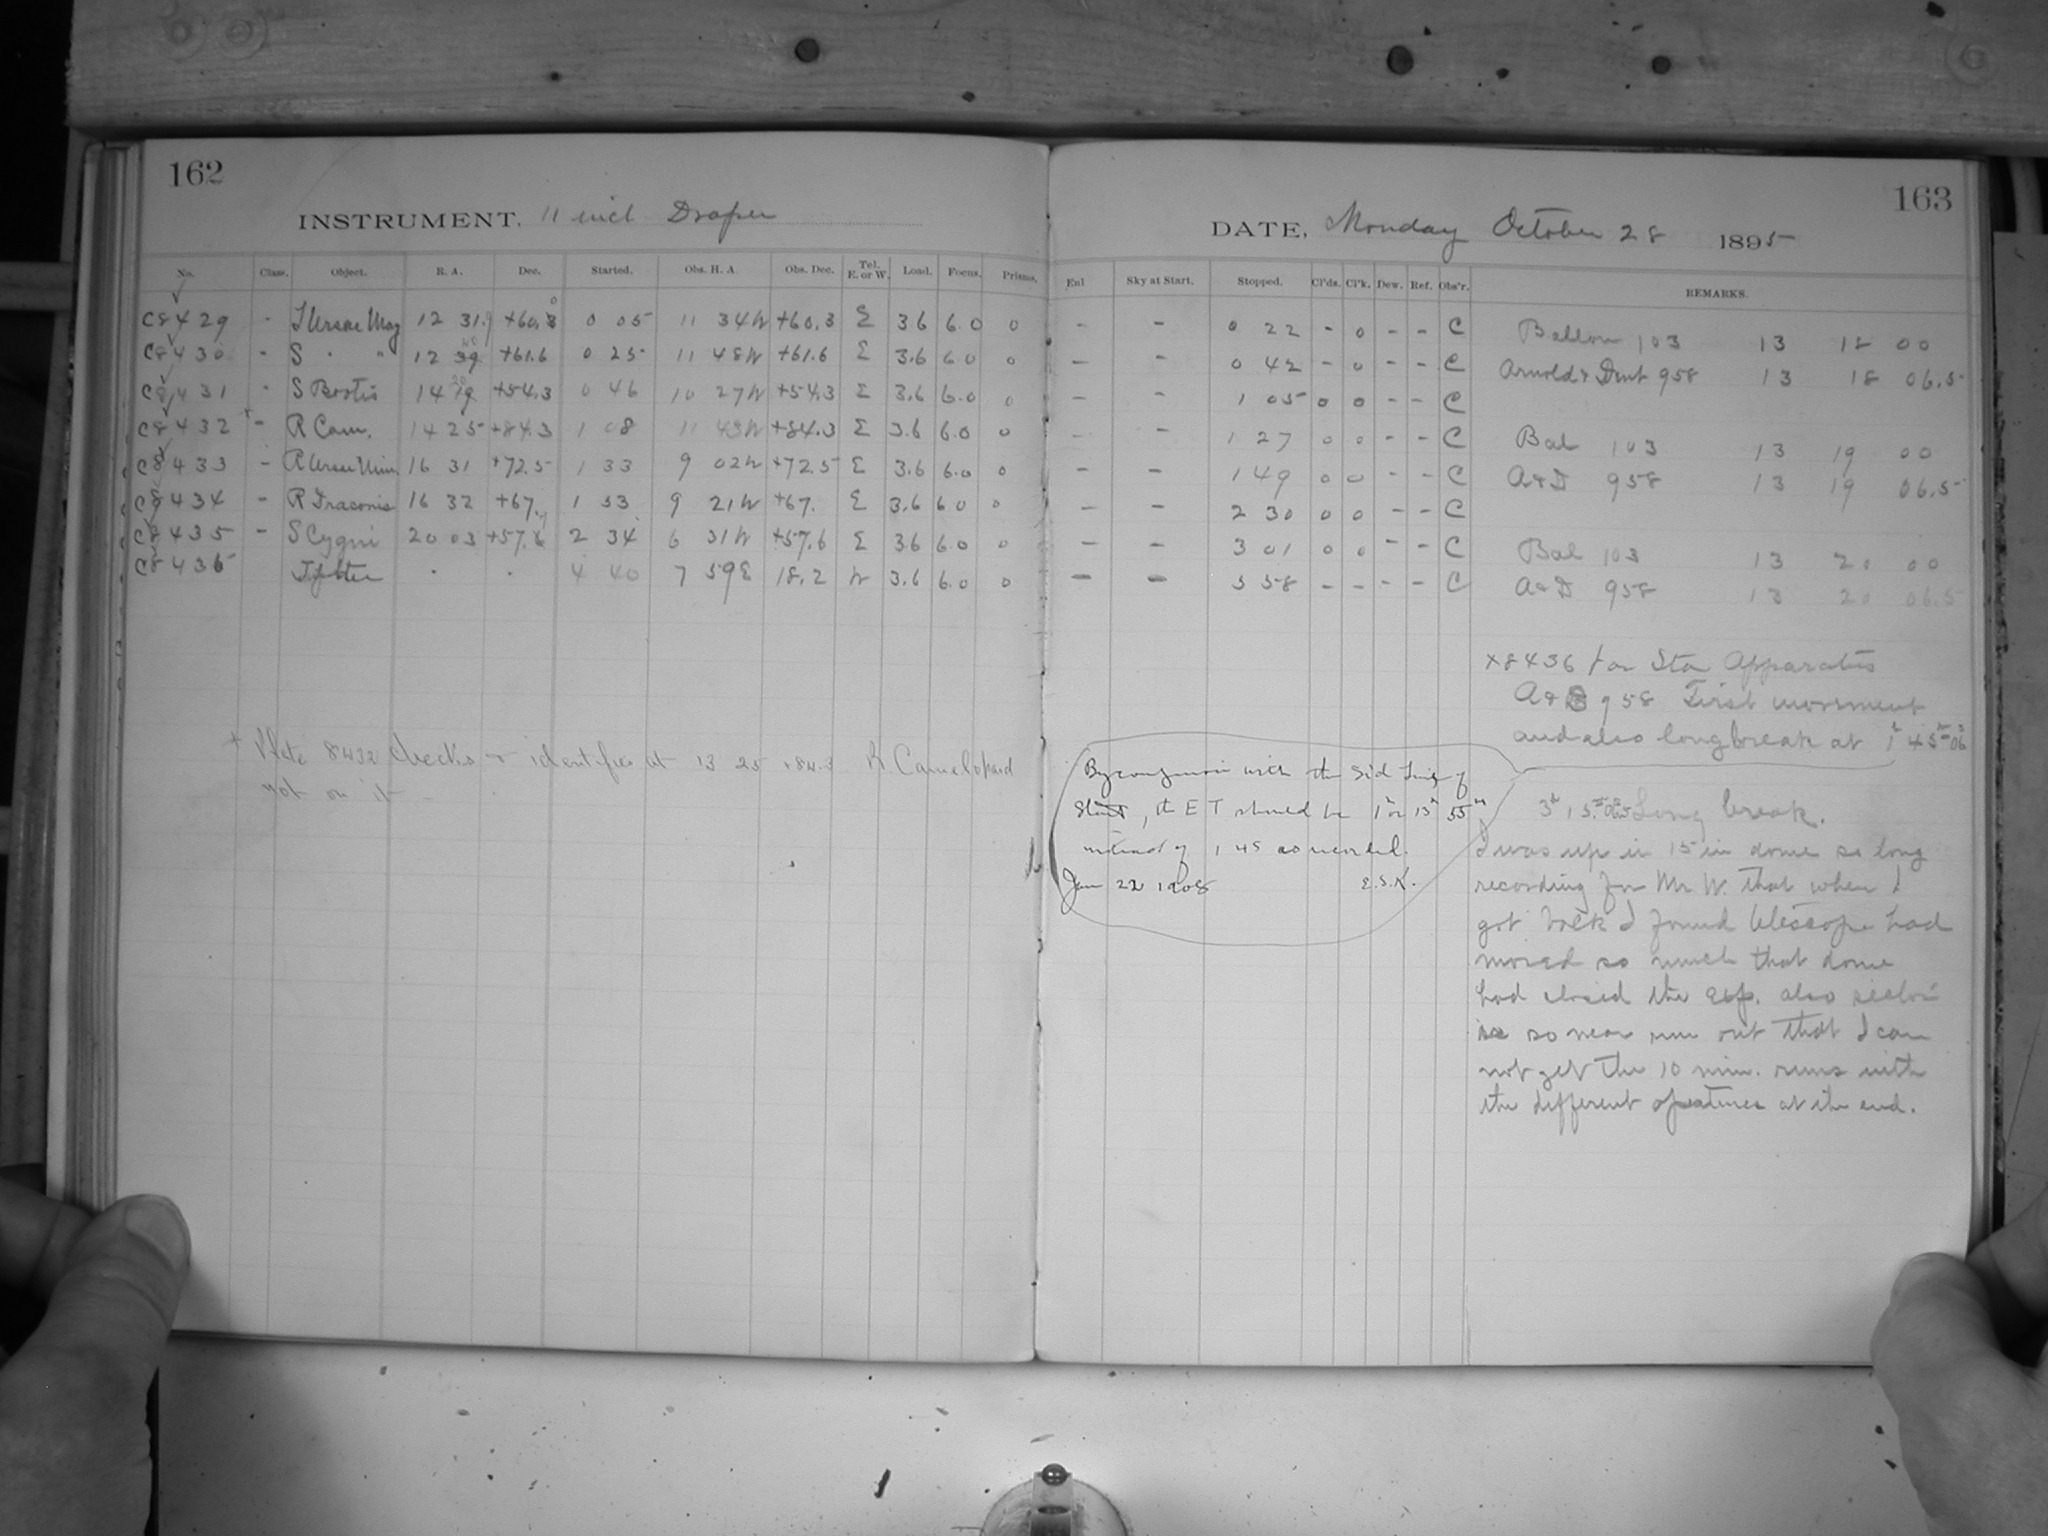 162
INSTRUMENT, 11 inch Draper
No. Class. Object. R. A. Dec. Started. Obs. H. A. Obs. Dec. Tel. E. or W. Load. Focus. Prisms.
C8429 - T Ursae Maj 12 31. +60.3 0 05 11 34 W +60.3 E 3.6 6.0 0
C8430 - S " " 12 39 +61.6 0 25 11 48 W +61.6 E 3.6 6.0 0
C8431 - S Bootis 14 19 +54.3 0 46 10 27 W +54.3 E 3.6 6.0 0
C8432 + - R Cam. 14 25 +84.3 1 08 11 43 W +84.3 E 3.6 6.0 0
C8433 - R Ursae Min. 16 31 +72.5 1 33 9 02 W +72.5 E 3.6 6.0 0
C8434 - R Draconis 16 32 +67. 1 53 9 21 W +67. E 3.6 6.0 0
C8435 - S Cygni 20 03 +57.6 2 34 6 31 W +57.6 E 3.6 6.0 0
C8436 Jupiter . . 4 40 7 59 E 18.2 W 3.6 6.0 0
+ Plate 8432 checks + identifies at 13 25 +84.3 R Camelopard
not on it -
163
DATE, Monday October 28 1895
Enl Sky at Start. Stopped. Cl'ds. Cl'k. Dew. Ref. Obs'r. REMARKS.
- - 0 22 - 0 - - C Ballou 103 13 18 00
- - 0 42 - 0 - - C Arnold & Dent 958 13 18 06.5
- - 1 05 0 0 - - C
- - 1 27 0 0 - - C Bal 103 13 19 00
- - 1 49 0 0 - - C A & D 958 13 19 06.5
- - 2 30 0 0 - - C
- - 3 01 0 0 - - C Bal 103 13 20 00
- - 5 58 - - - - C A & D 958 13 20 06.5
x8436 for Star Apparatus
A & D 958 First movement
and also long break at 1h 45m 06s
By comparison with the Sid Time of
Start, the E T should be 1h or 13h 55m
instead of 1 45 as recorded.
Jan 22 1908 E.S.K.
3h 15m Long break.
I was up in 15 in dome so long
recording for Mr. W. that when I
got back I found telescope had
moved so much that dome
had closed the exp. also sector
is so near run out that I can
not get the 10 min. runs with
the different apertures at the end.